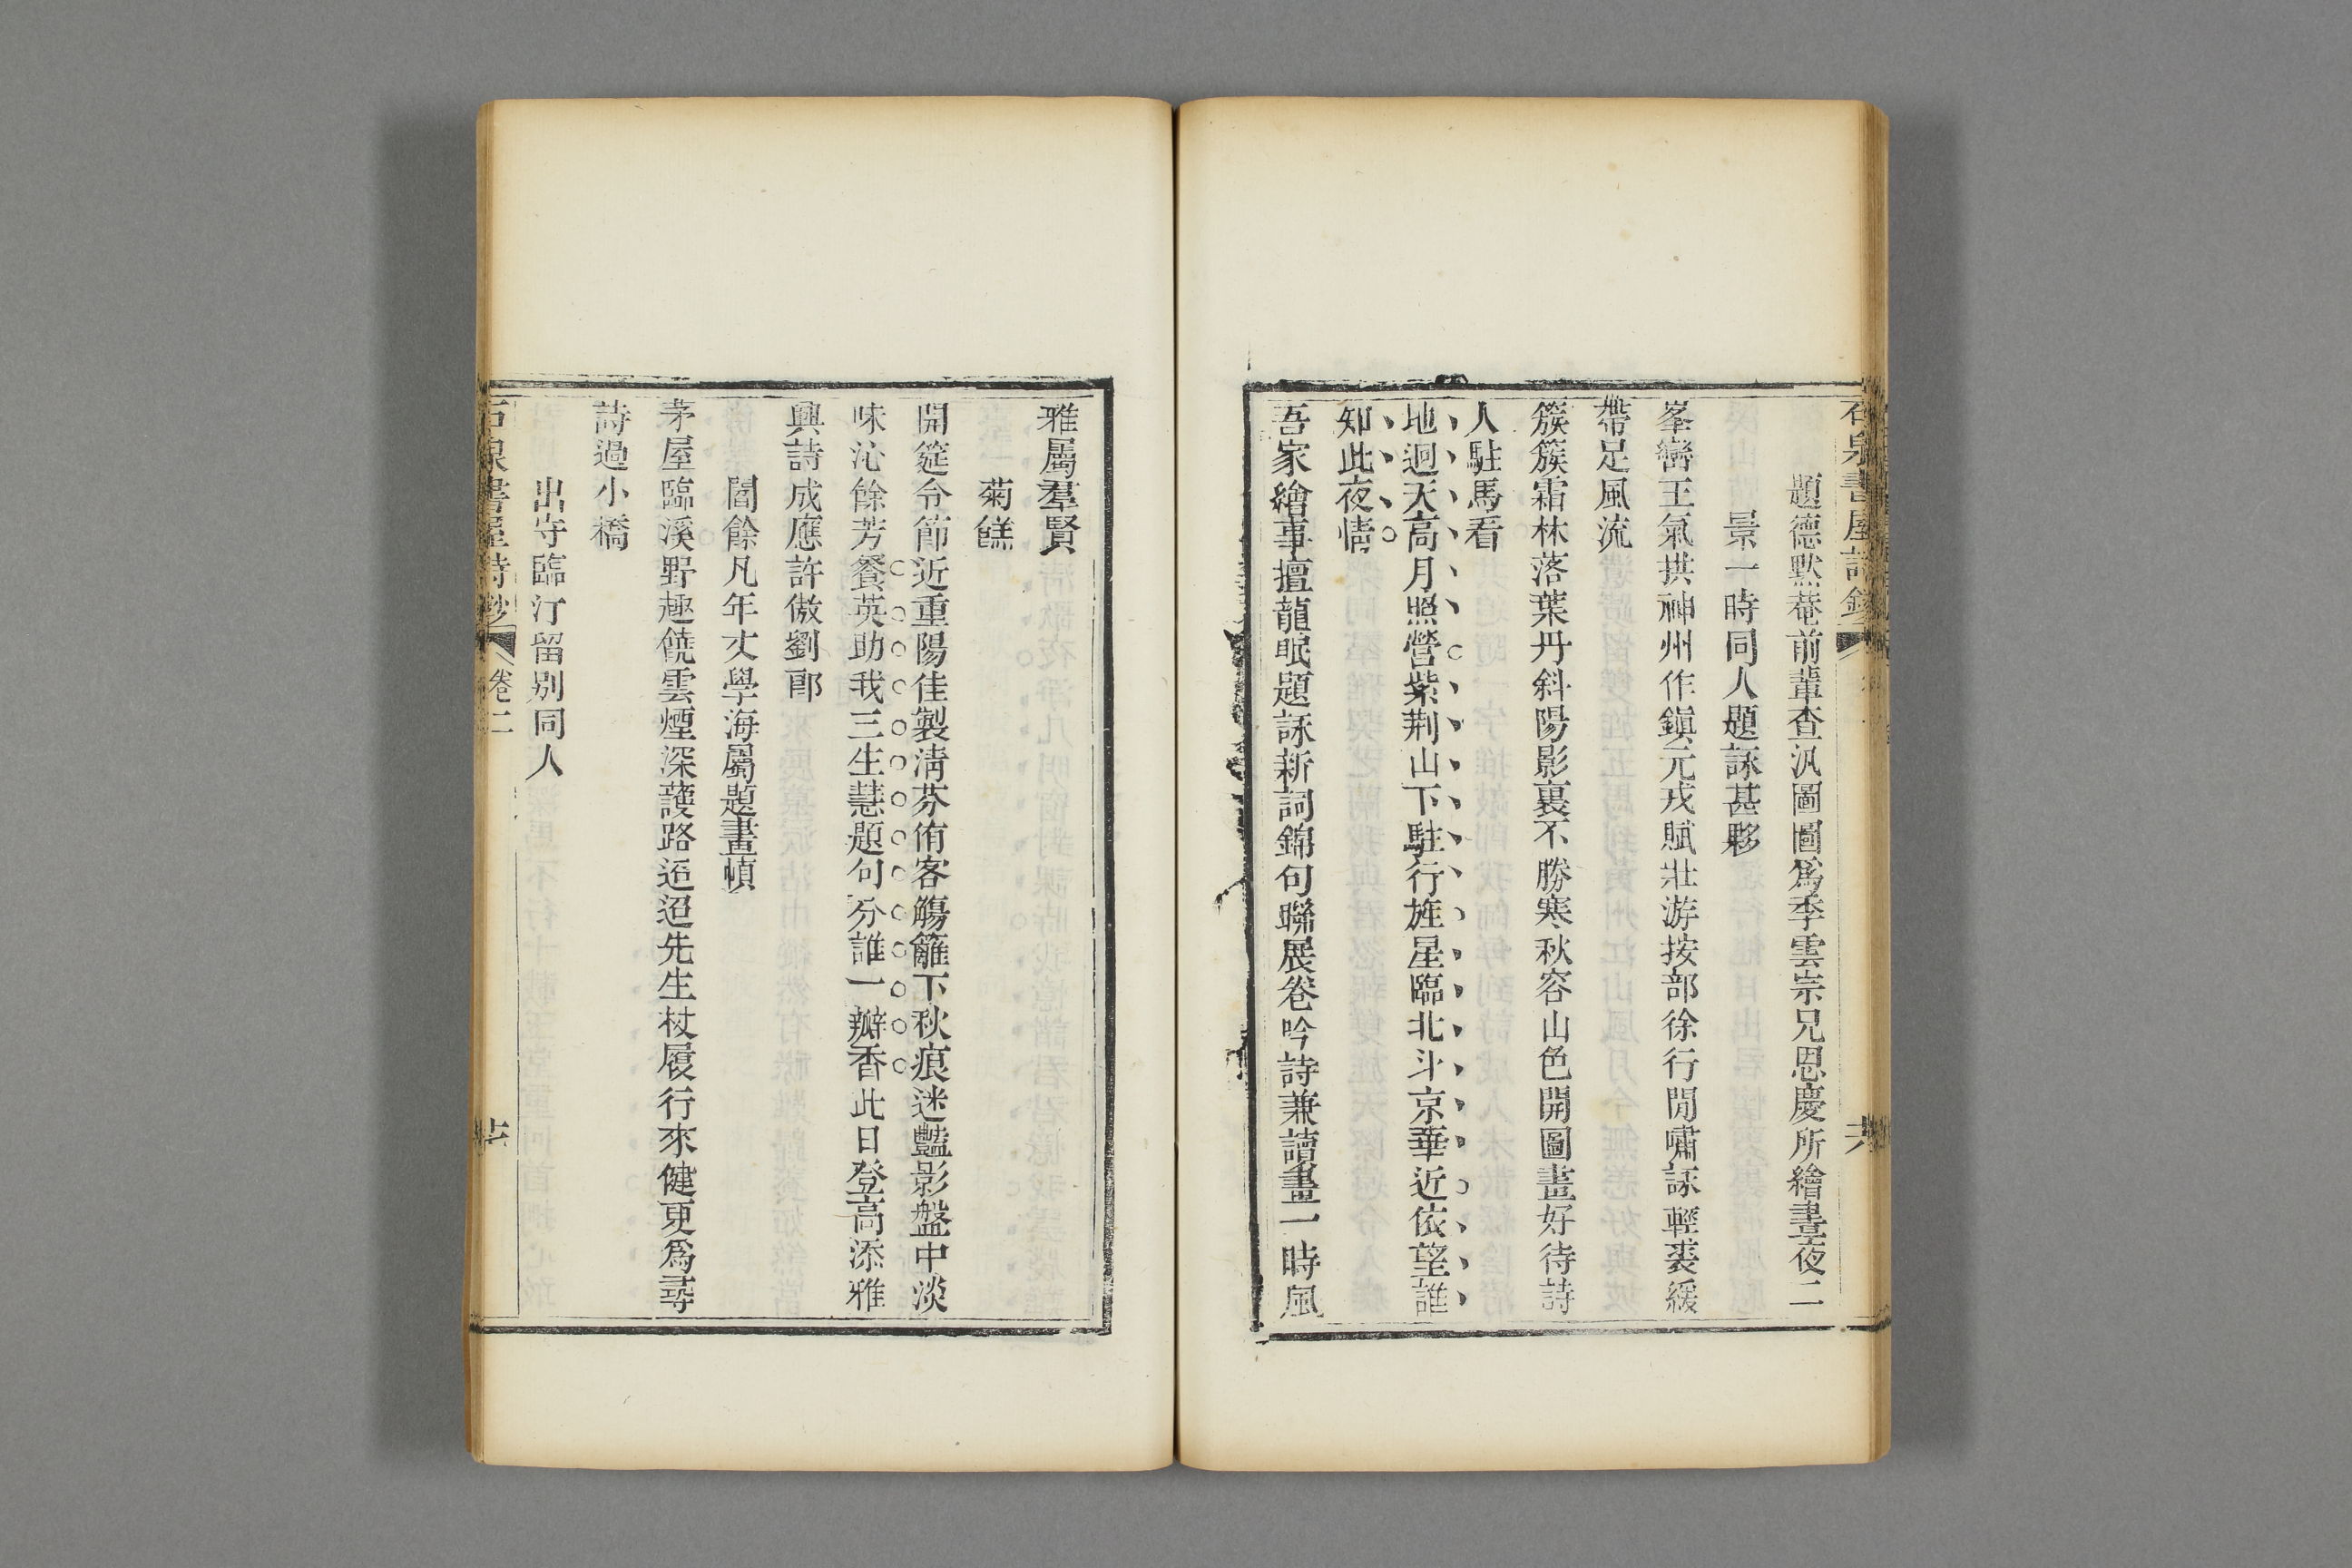 石泉書屋詩鈔
六
題德默菴前輩查汛圖圖爲季雲宗兄恩慶所繪晝夜二
景一時同人題詠甚夥
峯巒王氣拱神州作鎭元戎賦壯游按部徐行閒嘯詠輕裘緩
帶足風流
簇簇霜林落葉丹斜陽影裏不勝寒秋容山色開圖畫好待詩
人駐馬看
地迥天高月照營紫荆山下駐行旌星臨北斗京華近依望誰
知此夜情
吾家繪事擅龍眠題詠新詞錦句聯展卷吟詩兼讀畫一時風
雅屬羣賢
菊餻
開筵令節近重陽佳製淸芬侑客觴籬下秋痕迷豔影盤中淡
味沁餘芳餐英助我三生慧題句分誰一瓣香此日登高添雅
興詩成應許傲劉郎
閻餘凡年丈學海屬題畫幀
茅屋臨溪野趣饒雲煙深護路迢迢先生杖履行來健更爲尋
詩過小橋
出守臨汀留别同人
石泉書屋詩鈔
卷二